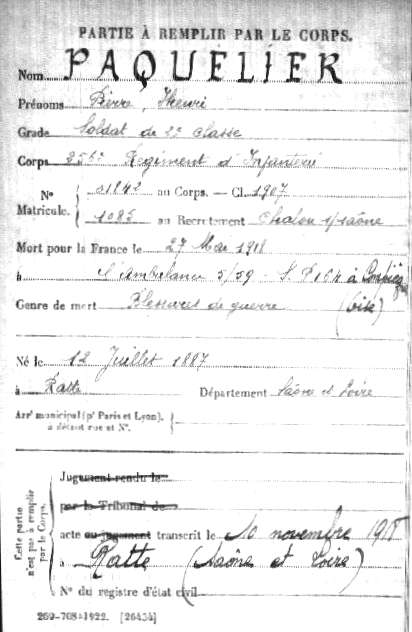 PARTIE À REMPLIR PAR LE CORPS.
Nom PAQUELIER
Prénoms Pierre, Henri
Grade Soldat de 2e classe
Corps 256e Régiment d'Infanterie
N° Matricule. { 01842 au Corps. — Cl. 1907
1085 au Recrutement Chalon s/Saône
Mort pour la France le 27 Mai 1918
à l'ambulance 5/59 - S. P 164 à Compiègne
Genre de mort Blessures de guerre (Oise)
Né le 12 Juillet 1887
à Ratte Département Saône et Loire
Arrt municipal (pr Paris et Lyon), à défaut rue et N°.
Cette partie n'est pas à remplir par le Corps.
Jugement rendu le
par le Tribunal de
acte ou jugement transcrit le 10 novembre 1918
à Ratte (Saône et Loire)
N° du registre d'état civil
269-708-1922. [26434]